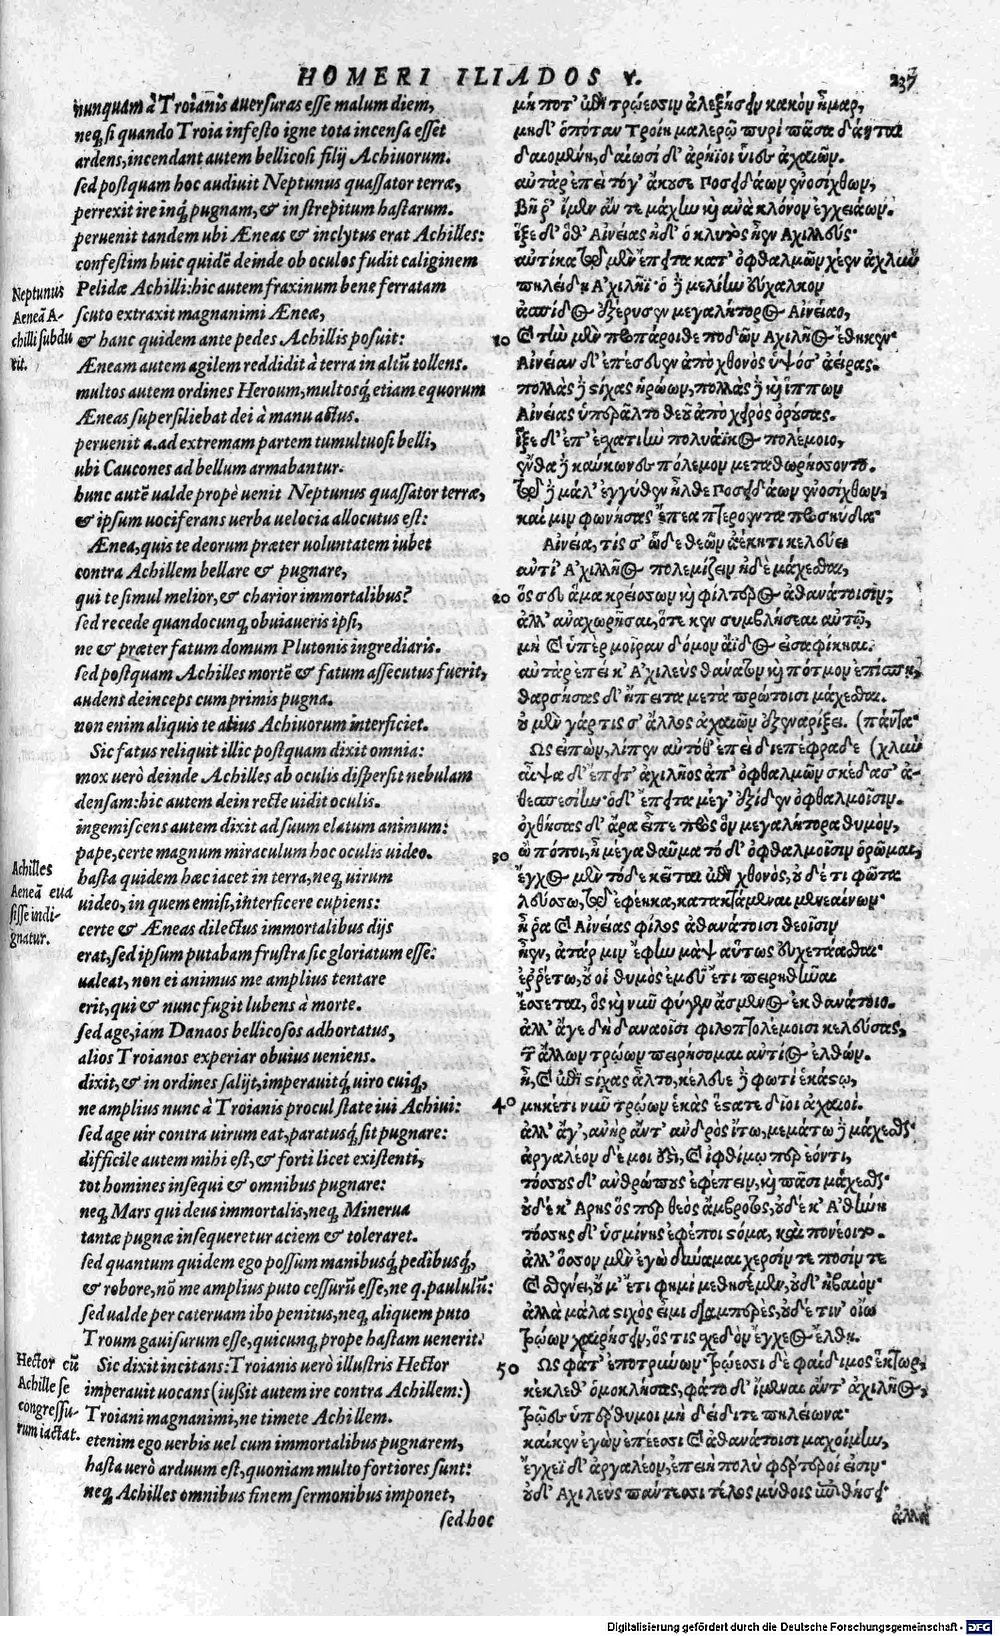 HOMERI ILIADOS Υ. 237
nunquam à Troianis auersuras esse malum diem,
neq; si quando Troia infesto igne tota incensa esset
ardens, incendant autem bellicosi filij Achiuorum.
sed postquam hoc audiuit Neptunus quassator terræ,
perrexit ire inq; pugnam, & in strepitum hastarum.
peruenit tandem ubi Æneas & inclytus erat Achilles:
confestim huic quidē deinde ob oculos fudit caliginem
Pelidæ Achilli: hic autem fraxinum bene ferratam
scuto extraxit magnanimi Æneæ,
& hanc quidem ante pedes Achillis posuit:
Æneam autem agilem reddidit à terra in altū tollens.
multos autem ordines Heroum, multosq; etiam equorum
Æneas supersiliebat dei à manu actus.
peruenit a. ad extremam partem tumultuosi belli,
ubi Caucones ad bellum armabantur.
hunc autē ualde propè uenit Neptunus quassator terræ,
& ipsum uociferans uerba uelocia allocutus est:
Ænea, quis te deorum præter uoluntatem iubet
contra Achillem bellare & pugnare,
qui te simul melior, & charior immortalibus?
sed recede quandocunq; obuiaueris ipsi,
ne & præter fatum domum Plutonis ingrediaris.
sed postquam Achilles mortē & fatum assecutus fuerit,
audens deinceps cum primis pugna.
non enim aliquis te alius Achiuorum interficiet.
Sic fatus reliquit illic postquam dixit omnia:
mox uerò deinde Achilles ab oculis dispersit nebulam
densam: hic autem dein recte uidit oculis.
ingemiscens autem dixit ad suum elatum animum:
pape, certe magnum miraculum hoc oculis uideo.
hasta quidem hæc iacet in terra, neq; uirum
uideo, in quem emisi, interficere cupiens:
certe & Æneas dilectus immortalibus dijs
erat, sed ipsum putabam frustra sic gloriatum esse:
ualeat, non ei animus me amplius tentare
erit, qui & nunc fugit lubens à morte.
sed age, iam Danaos bellicosos adhortatus,
alios Troianos experiar obuius ueniens.
dixit, & in ordines salijt, imperauitq; uiro cuiq;,
ne amplius nunc à Troianis procul state iui Achiui:
sed age uir contra uirum eat, paratusq; sit pugnare:
difficile autem mihi est, & forti licet existenti,
tot homines insequi & omnibus pugnare:
neq; Mars qui deus immortalis, neq; Minerua
tantæ pugnæ insequeretur aciem & toleraret.
sed quantum quidem ego possum manibusq; pedibusq;,
& robore, nō me amplius puto cessurū esse, ne q. paululū:
sed ualde per cateruam ibo penitus, neq; aliquem puto
Troum gauisurum esse, quicunq; prope hastam uenerit.
Sic dixit incitans: Troianis uerò illustris Hector
imperauit uocans (iussit autem ire contra Achillem:)
Troiani magnanimi, ne timete Achillem.
etenim ego uerbis uel cum immortalibus pugnarem,
hasta uerò arduum est, quoniam multo fortiores sunt:
neq; Achilles omnibus finem sermonibus imponet,
sed hoc
Neptunus
Aeneā A-
chilli subdu
xit.
Achilles
Aeneā eua
sisse indi-
gnatur.
Hector cū
Achille se
congressu-
rum iactat.
μή ποτ' ἐπὶ τρώεοσιν ἀλεξήσειν κακὸν ἦμαρ,
μηδ' ὁπόταν τροίη μαλερῷ πυρὶ πᾶσα δάηται
δαιομένη, δαίωσι δ' ἀρήϊοι υἷες ἀχαιῶν.
αὐτὰρ ἐπεὶ τόγ' ἄκουσε ποσειδάων ἐνοσίχθων,
βῆ ῥ' ἴμεν ἄν τε μάχην καὶ ἀνὰ κλόνον ἐγχειάων.
ἷξε δ' ὅθ' Αἰνείας ἠδ' ὁ κλυτὸς ἦεν Ἀχιλλεύς·
αὐτίκα τῷ μὲν ἔπειτα κατ' ὀφθαλμῶν χέεν ἀχλὺν
πηλείδῃ Ἀχιλῆϊ· ὁ δὲ μελίην εὔχαλκον
ἀσπίδος ἐξέρυσεν μεγαλήτορος Αἰνείαο,
10 καὶ τὴν μὲν προπάροιθε ποδῶν Ἀχιλῆος ἔθηκεν·
Αἰνείαν δ' ἐπέσσευεν ἀπὸ χθονὸς ὑψόσ' ἀείρας.
πολλὰς δὲ στίχας ἡρώων, πολλὰς δὲ καὶ ἵππων
Αἰνείας ὑπεράλτο θεοῦ ἀπὸ χειρὸς ὀρούσας.
ἷξε δ' ἐπ' ἐσχατιὴν πολυάϊκος πολέμοιο,
ἔνθα δὲ καύκωνες πόλεμον μέτα θωρήσσοντο.
τῷ δὲ μάλ' ἐγγύθεν ἦλθε ποσειδάων ἐνοσίχθων,
καί μιν φωνήσας ἔπεα πτερόεντα προσηύδα·
Αἰνεία, τίς σ' ὧδε θεῶν ἀέκητι κελεύει
ἀντί' Ἀχιλλῆος πολεμίζειν ἠδὲ μάχεσθαι,
20 ὅς σευ ἅμα κρείσσων καὶ φίλτερος ἀθανάτοισιν;
ἀλλ' ἀναχωρῆσαι, ὅτε κεν συμβλήσεαι αὐτῷ,
μὴ καὶ ὑπὲρ μοῖραν δόμον ἄϊδος εἰσαφίκηαι.
αὐτὰρ ἐπεὶ κ' Ἀχιλεὺς θάνατον καὶ πότμον ἐπίσπῃ,
θαρσήσας δ' ἤπειτα μετὰ πρώτοισι μάχεσθαι.
οὐ μὲν γάρ τις σ' ἄλλος ἀχαιῶν ἐξεναρίξει. (πάντα·
Ὣς εἰπὼν, λίπεν αὐτόθ' ἐπεὶ διεπέφραδε (χλὺν
αἶψα δ' ἔπειτ' ἀχιλῆος ἀπ' ὀφθαλμῶν σκέδασ' ἀ-
θεσπεσίην· ὁ δ' ἔπειτα μέγ' ἔξιδεν ὀφθαλμοῖσιν.
ὀχθήσας δ' ἄρα εἶπε πρὸς ὃν μεγαλήτορα θυμὸν,
30 ὢ πόποι, ἦ μέγα θαῦμα τό δ' ὀφθαλμοῖσιν ὁρῶμαι,
ἔγχος μὲν τόδε κεῖται ἐπὶ χθονὸς, οὐδέ τι φῶτα
λεύσσω, τῷ ἐφέηκα, κατακτάμεναι μενεαίνων·
ἦ ῥα καὶ Αἰνείας φίλος ἀθανάτοισι θεοῖσιν
ἦεν, ἀτάρ μιν ἔφην μὰψ αὔτως εὐχετάασθαι·
ἐρρέτω, οὔ οἱ θυμὸς ἐμεῦ ἔτι πειρηθῆναι
ἔσσεται, ὃς καὶ νῦν φύγεν ἄσμενος ἐκ θανάτοιο.
ἀλλ' ἄγε δὴ δαναοῖσι φιλοπτολέμοισι κελεύσας,
τῶν ἄλλων τρώων πειρήσομαι ἀντίος ἐλθών.
ἦ, καὶ ἐπὶ στίχας ἆλτο, κέλευε δὲ φωτὶ ἑκάστῳ,
40 μηκέτι νῦν τρώων ἑκὰς ἕστατε δῖοι ἀχαιοί.
ἀλλ' ἄγ', ἀνὴρ ἄντ' ἀνδρὸς ἴτω, μεμάτω δὲ μάχεσθαι·
ἀργαλέον δέ μοι ἐστὶ, καὶ ἰφθίμῳ περ ἐόντι,
τόσσους δ' ἀνθρώπους ἐφέπειν, καὶ πᾶσι μάχεσθαι·
οὐδέ κ' Ἄρης ὅς περ θεὸς ἄμβροτος, οὐδέ κ' Ἀθήνη
τόσσης δ' ὑσμίνης ἐφέποι στόμα, καὶ πονέοιτο.
ἀλλ' ὅσσον μὲν ἐγὼ δύναμαι χερσίν τε ποσίν τε
καὶ σθένει, οὔ μ' ἔτι φημὶ μεθησέμεν, οὐδ' ἠβαιόν·
ἀλλὰ μάλα στιχὸς εἶμι διαμπερὲς, οὐδέ τιν' οἴω
τρώων χαιρήσειν, ὅς τις σχεδὸν ἔγχεος ἔλθῃ.
50 Ὣς φάτ' ἐποτρύνων· τρώεσσι δὲ φαίδιμος ἕκτωρ,
κέκλεθ' ὁμοκλήσας, φάτο δ' ἴμεναι ἄντ' ἀχιλῆος,
τρῶες ὑπέρθυμοι μὴ δείδιτε πηλείωνα·
καί κεν ἐγὼν ἐπέεσσι καὶ ἀθανάτοισι μαχοίμην,
ἔγχεϊ δ' ἀργαλέον, ἐπειὴ πολὺ φέρτεροί εἰσιν·
οὐδ' Ἀχιλεὺς πάντεσσι τέλος μύθοις ἐπιθήσει·
ἀλλὰ
Digitalisierung gefördert durch die Deutsche Forschungsgemeinschaft - DFG